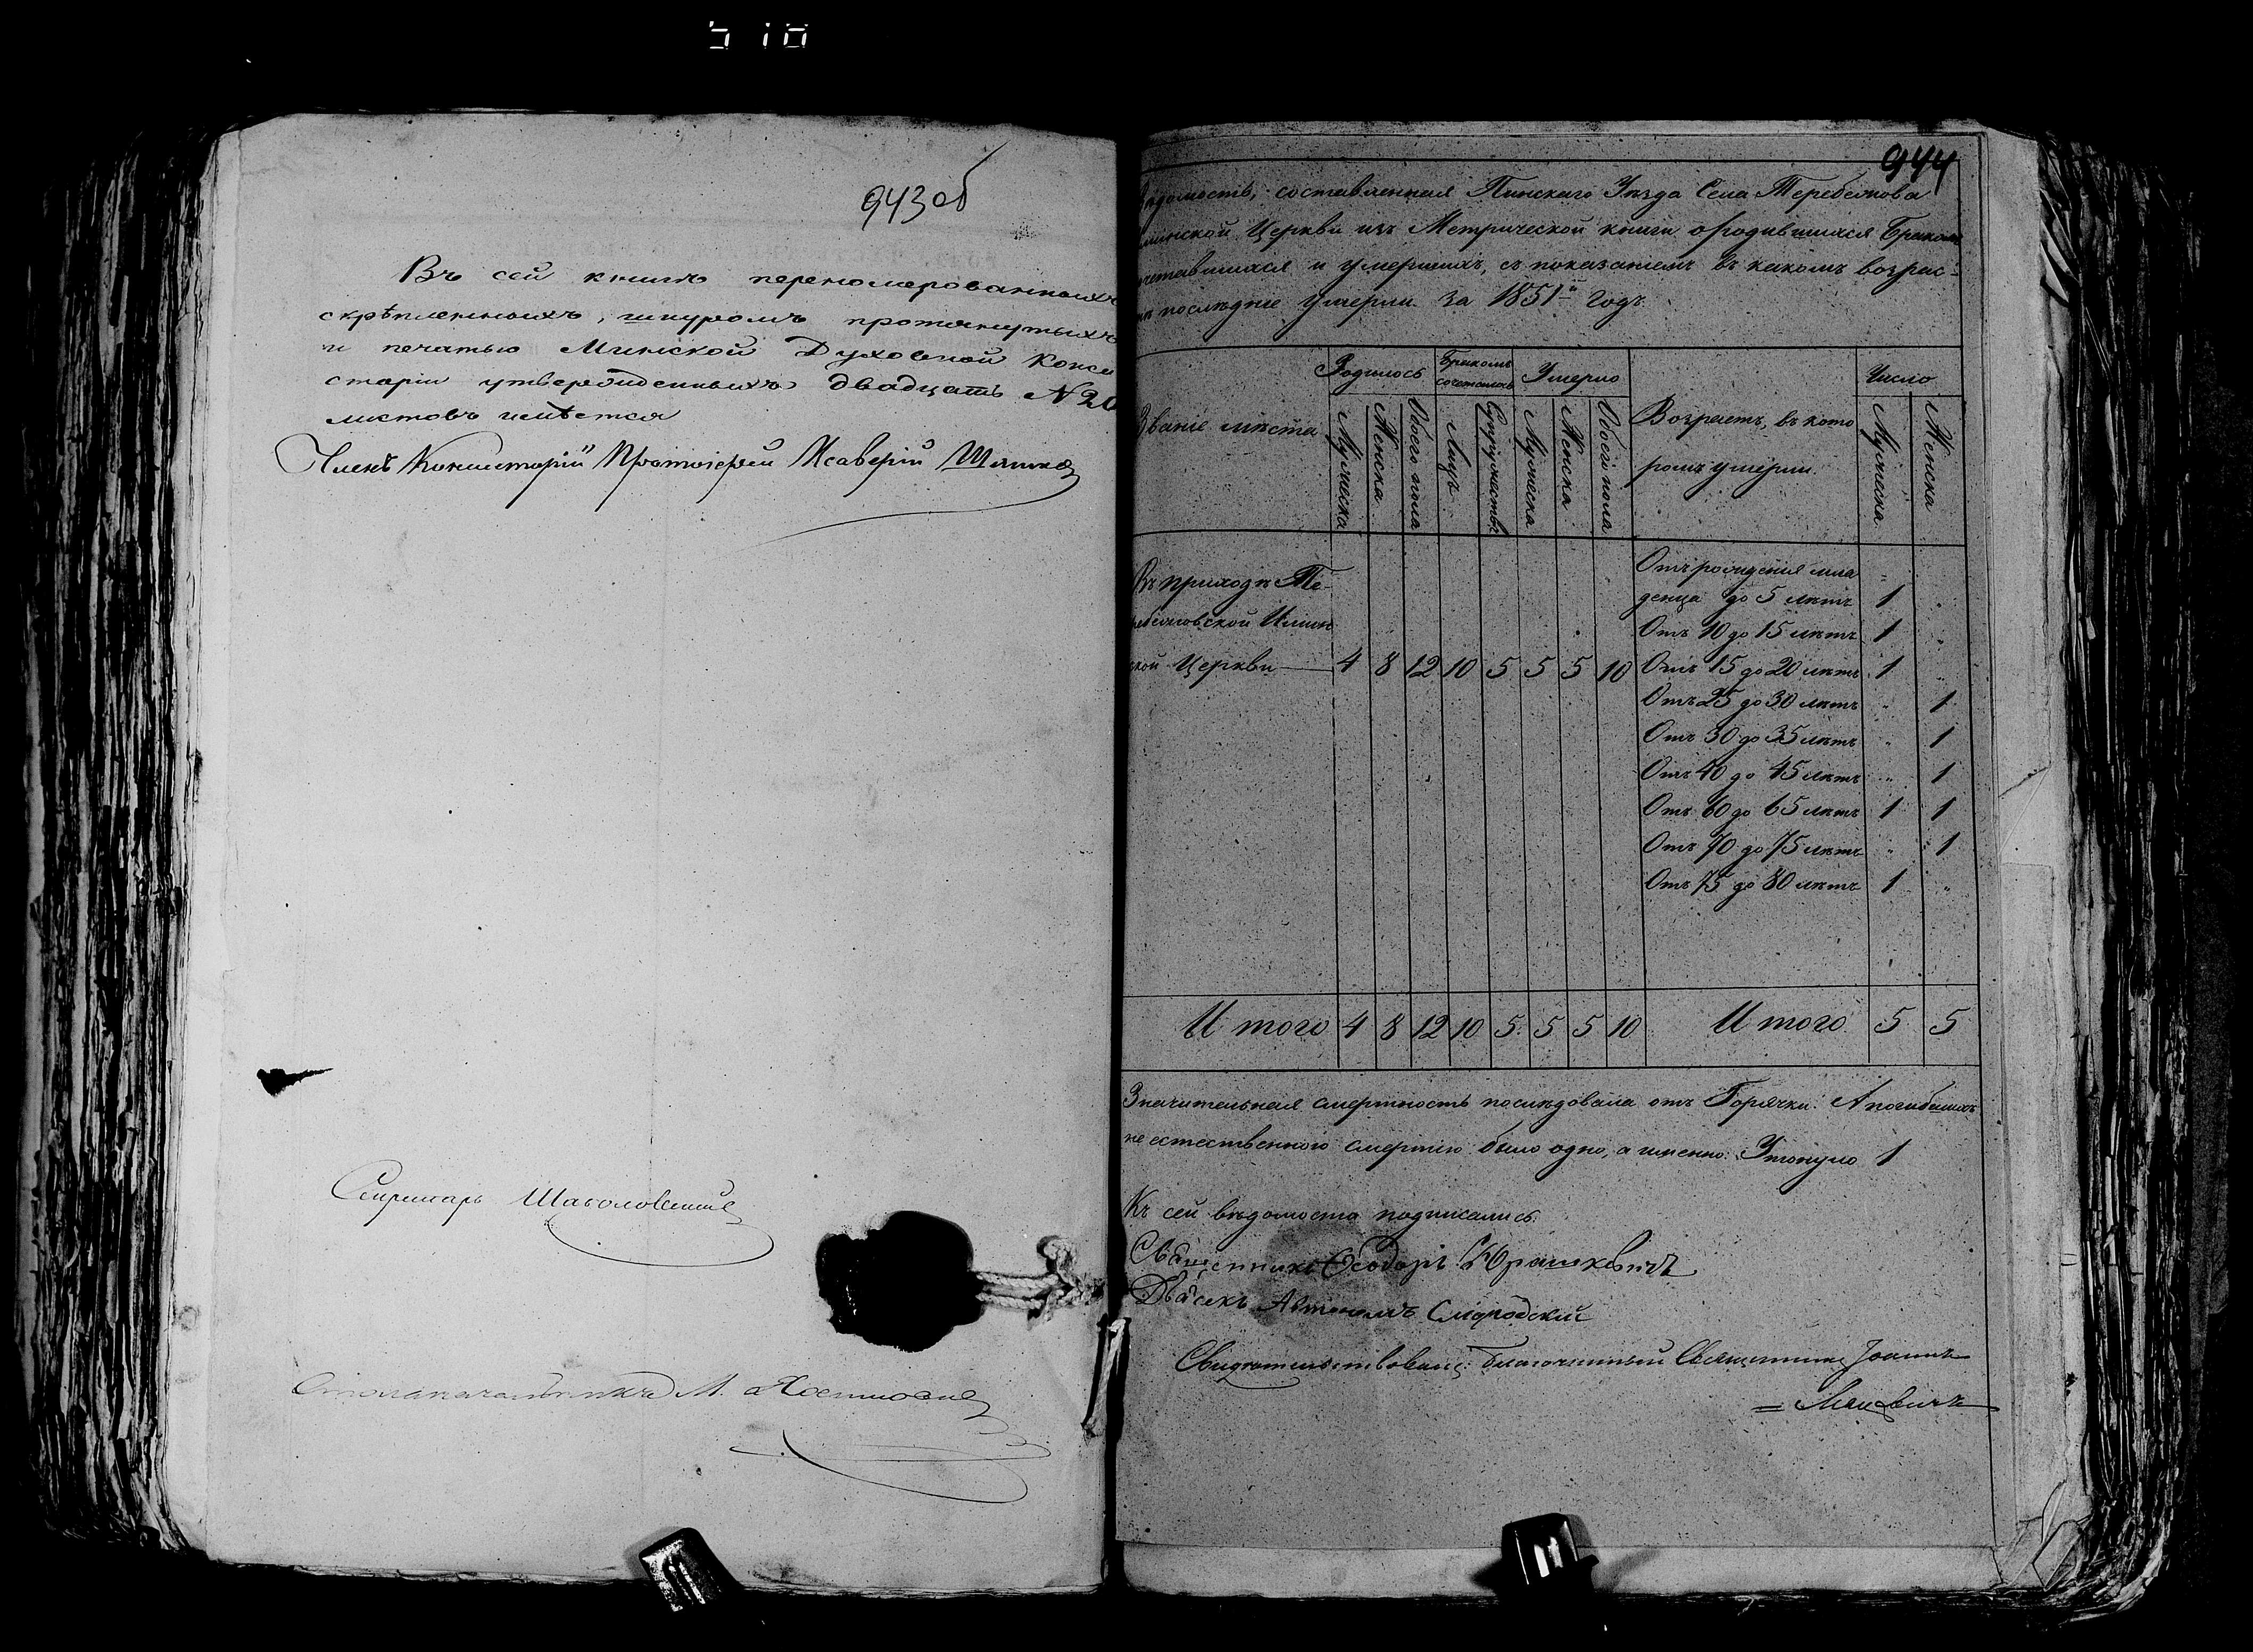 510
943 об
Въ сей книгѣ перекомерованныхъ
скрѣпленныхъ, шнуромъ протянутыхъ
и печатью Минской Духовной Конси
сторіи утвержденныхъ двадцать N 20
листовъ имѣется
Членъ Консисторіи Протоіерей Ксаверій
Секретарь
Столоначальникъ М.
944
вѣдомость, составленная Пинскаго Уѣзда Села Теребежова
Церкви изъ Метрической книги о родившихся Бракомъ
сочетавшихся и умершихъ, съ показаніемъ въ какомъ возрас-
послѣдніе умерли за 1851й годъ.
Званіе мѣста
Родилось
Бракомъ сочеталось
Умерло
Возрастъ, въ кото
ромъ умерли.
Число
Мужеска
Женска
Обоего пола
Лицъ
Супружествъ
Мужеска
Женска
Обоего пола
Мужеска
Женска
Въ приходѣ Те-
ребежовской Ильин
ской Церкви 4 8 12 10 5 5 5 10
Отъ рожденія мла
денца до 5 лѣтъ 1 "
Отъ 10 до 15 лѣтъ 1 "
Отъ 15 до 20 лѣтъ 1 "
Отъ 25 до 30 лѣтъ " 1
Отъ 30 до 35 лѣтъ " 1
Отъ 40 до 45 лѣтъ " 1
Отъ 60 до 65 лѣтъ 1 1
Отъ 70 до 75 лѣтъ " 1
Отъ 75 до 80 лѣтъ 1 "
Итого 4 8 12 10 5 5 5 10 Итого 5 5
Значительная смертность послѣдовала отъ Горячки. А погибшихъ
не естественною смертію было одно, а именно: Утонуло 1
Къ сей вѣдомости подписались:
Священникъ Ѳеодоръ Юрашкевичъ
Дьячекъ Автономъ
Свидѣтельствовалъ: Благочинный Священникъ Іоаннъ